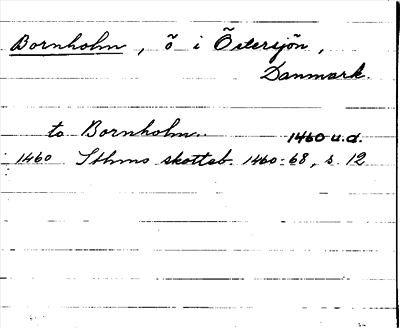 Bornholm, ö i Östersjön,
Danmark.
to Bornholm. 1460 u.d.
1460 Sthms skotteb. 1460-68, s. 12